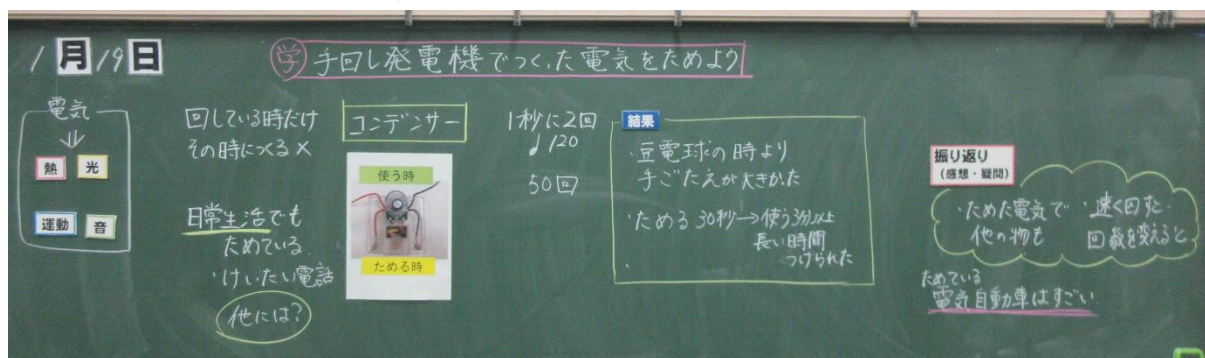 1月19日
学 手回し発電機でつくった電気をためよう
電気
熱 光
運動 音
回している時だけ
その時につくる×
日常生活でも
ためている
・けいたい電話
他には?
コンデンサー
使う時
ためる時
1秒に2回
♩120
50回
結果
・豆電球の時より
手ごたえが大きかった
・ためる30秒→使う3分以上
長い時間
つけられた
・
振り返り
(感想・疑問)
・ためた電気で
他の物も
・速く回すと
回数を変えると
ためている
電気自動車はすごい